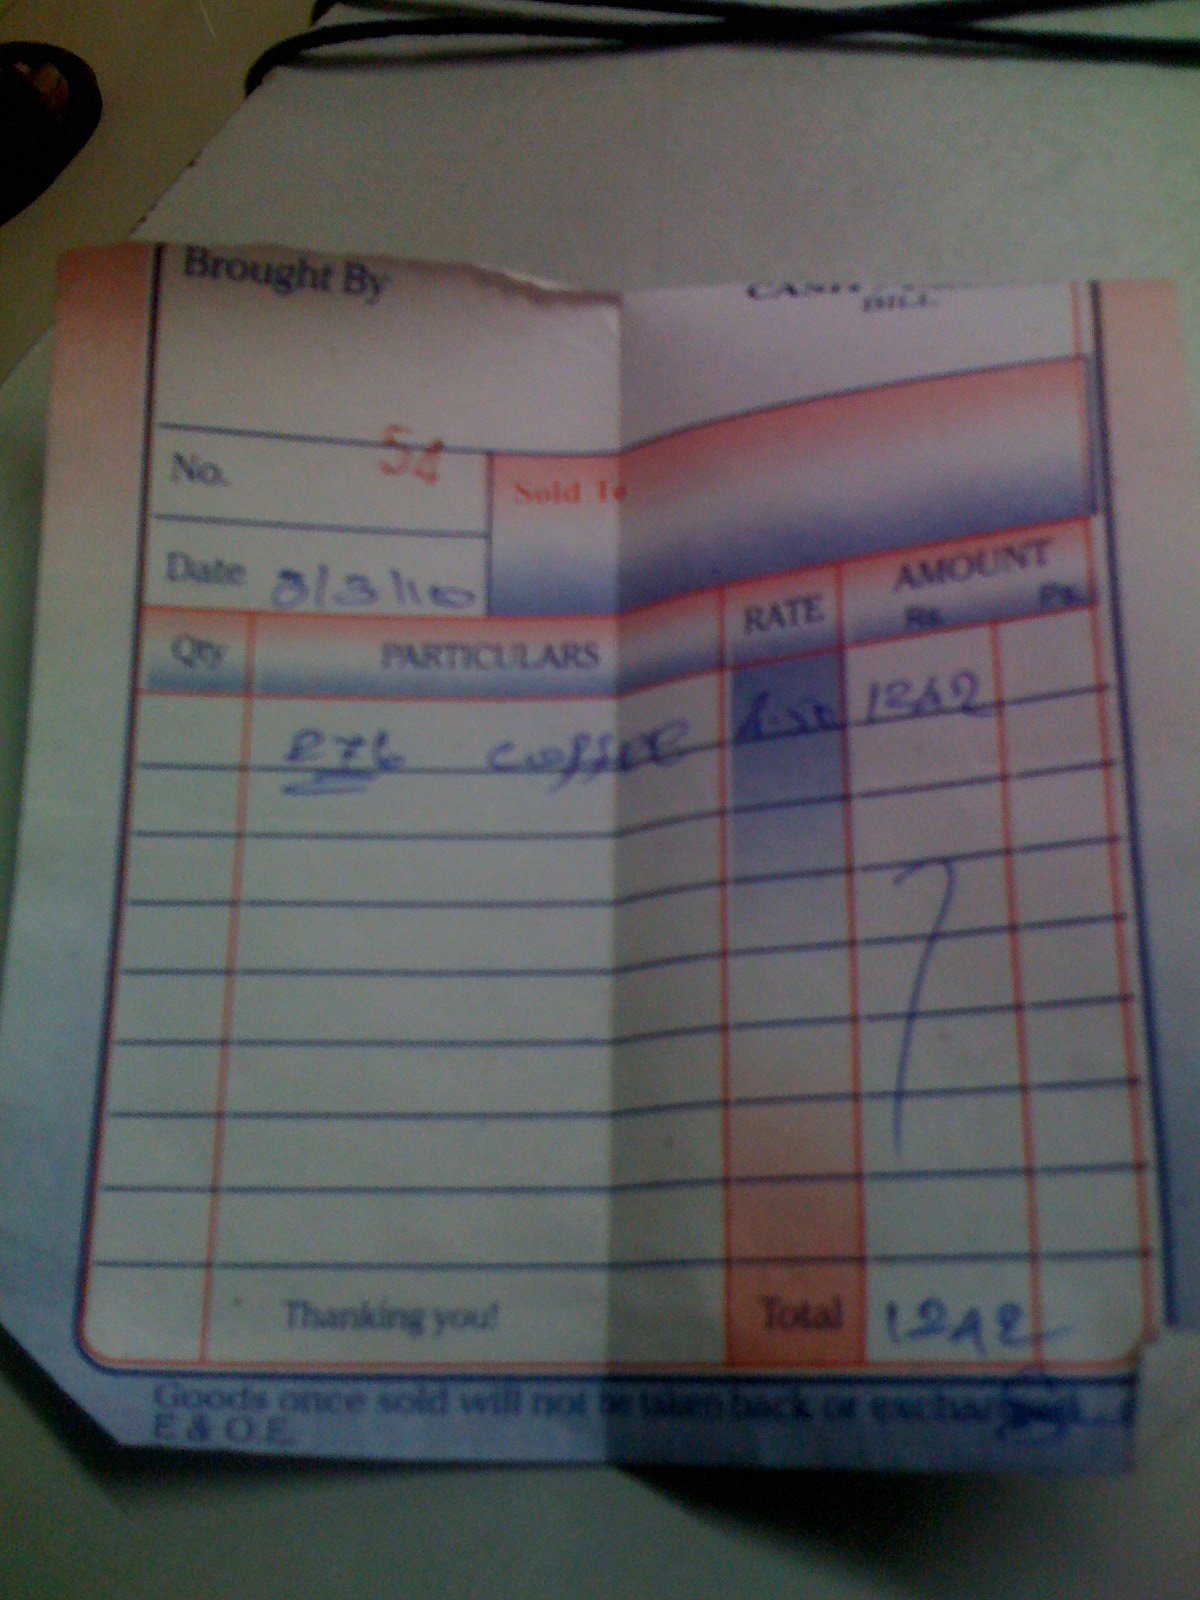 Brought By
CASH
BILL
No. 54
Sold To
Date 8/3/10
Qty PARTICULARS RATE AMOUNT
Rs. Ps.
276 coffee 4.50 1242
Thanking you! Total 1242
Goods once sold will not be taken back or exchanged
E & O.E.